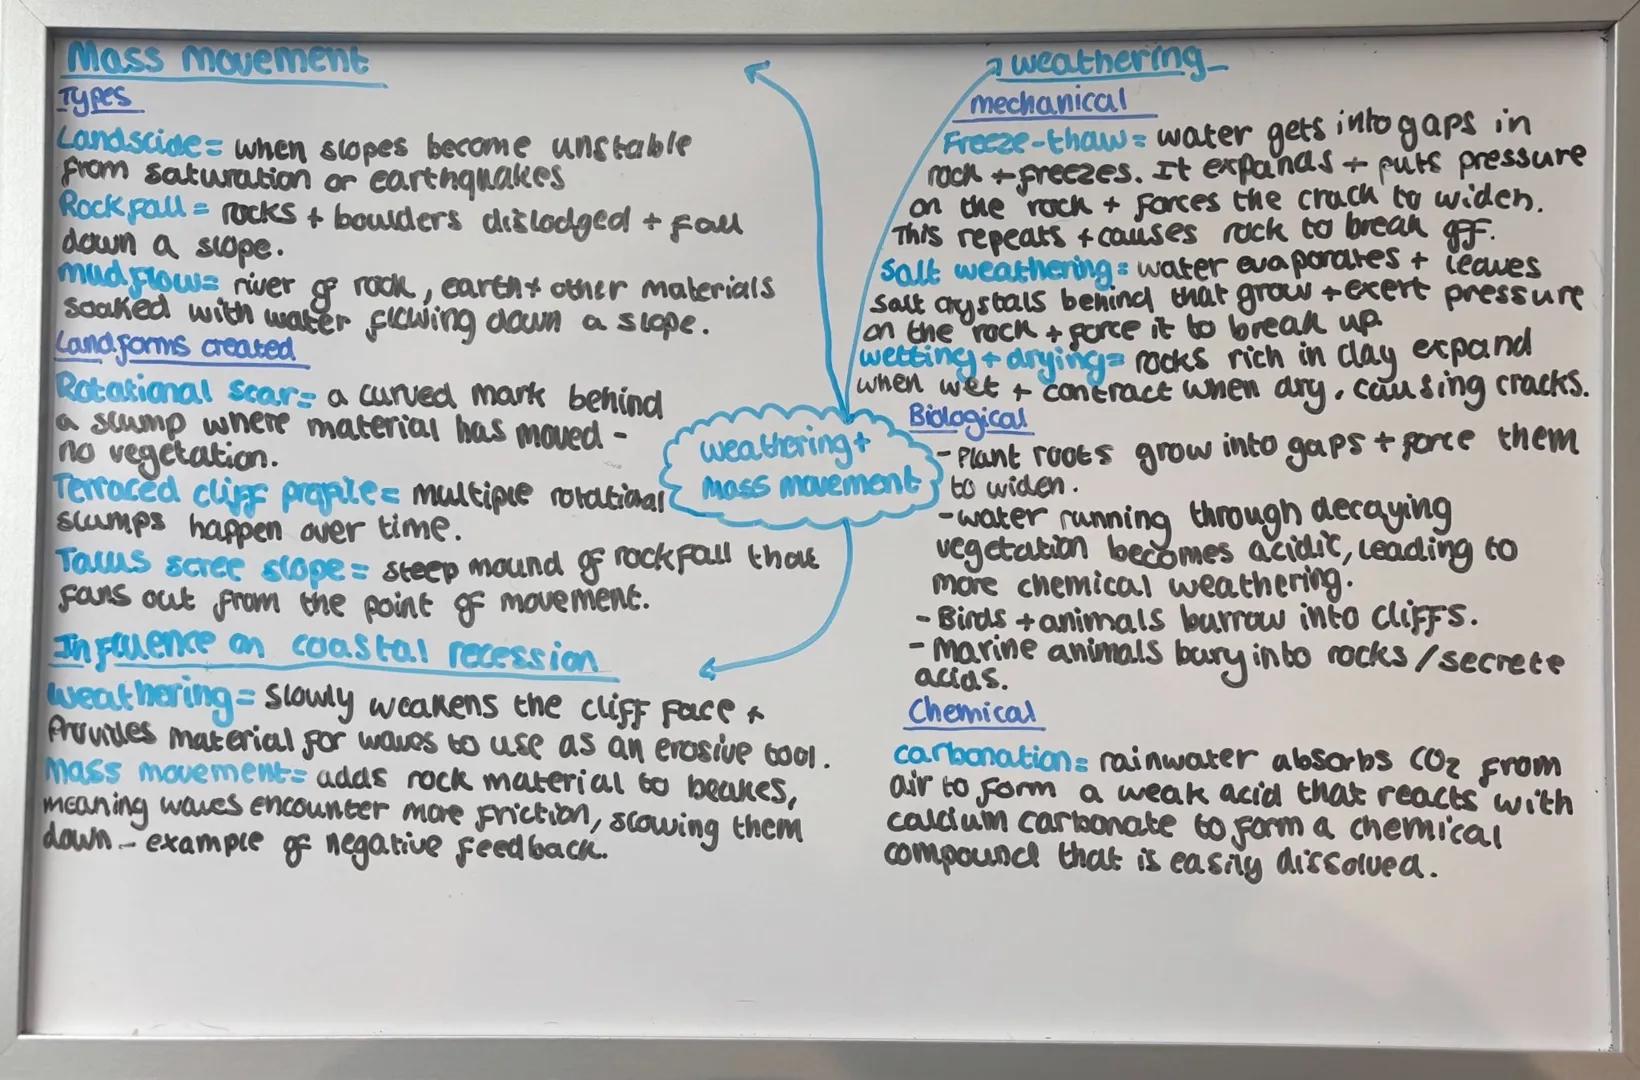 Mass movement
Types
Landslide = when slopes become unstable
from saturation or earthquakes
Rockfall = rocks + boulders dislodged + fall
down a slope.
mudflow = river of rock, earth + other materials
soaked with water flowing down a slope.
Landforms created
Rotational scar = a curved mark behind
a slump where material has moved -
no vegetation.
Terraced cliff profile = multiple rotational
slumps happen over time.
Talus scree slope = steep mound of rockfall that
fans out from the point of movement.
Influence on coastal recession
weathering = slowly weakens the cliff face +
Provides material for waves to use as an erosive tool.
mass movement = adds rock material to beakes,
meaning waves encounter more friction, slowing them
down - example of negative feedback.
weathering +
mass movement
weathering
mechanical
Freeze-thaw = water gets into gaps in
rock + freezes. It expands + puts pressure
on the rock + forces the crack to widen.
This repeats + causes rock to break off.
Salt weathering = water evaporates + leaves
salt crystals behind that grow + exert pressure
on the rock + force it to break up
wetting + drying = rocks rich in clay expand
when wet + contract when dry, causing cracks.
Biological
- Plant roots grow into gaps + force them
to widen.
- water running through decaying
vegetation becomes acidic, leading to
more chemical weathering.
- Birds + animals burrow into cliffs.
- Marine animals bury into rocks / secrete
acids.
Chemical
carbonation = rainwater absorbs CO2 from
air to form a weak acid that reacts with
calcium carbonate to form a chemical
compound that is easily dissolved.